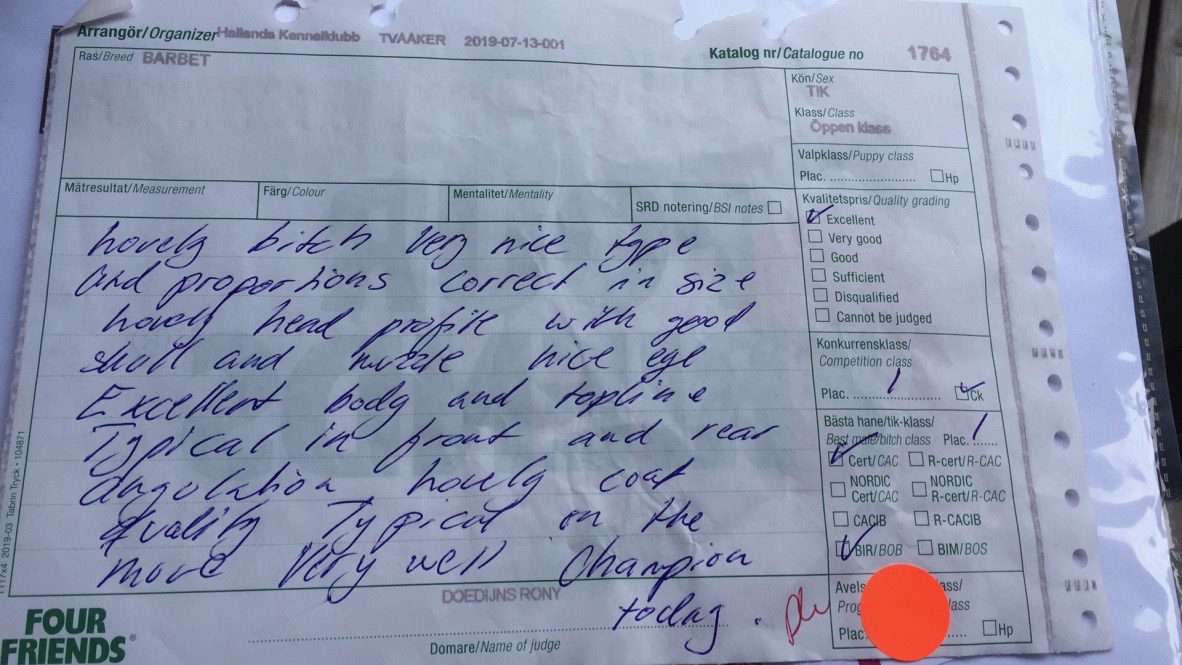 Arrangör/Organizer Hallands Kennelklubb TVAAKER 2019-07-13-001
Katalog nr/Catalogue no 1764
Ras/Breed BARBET
Kön/Sex
TIK
Klass/Class
Öppen klass
Valpklass/Puppy class
Plac. ...................... Hp
Mätresultat/Measurement Färg/Colour Mentalitet/Mentality SRD notering/BSI notes
Kvalitetspris/Quality grading
Excellent
Very good
Good
Sufficient
Disqualified
Cannot be judged
Lovely bitch very nice type
and proportions correct in size
Lovely head profile with good
skull and muzzle nice eye
Excellent body and topline
Typical in front and rear
angulation lovely coat
quality Typical on the
move Very well Champion
today.
Konkurrensklass/
Competition class
Plac. 1 Ck
Bästa hane/tik-klass/
Best male/bitch class Plac. 1
Cert/CAC R-cert/R-CAC
NORDIC Cert/CAC NORDIC R-cert/R-CAC
CACIB R-CACIB
BIR/BOB BIM/BOS
Avels ass/
Prog lass
Plac. Hp
DOEDIJNS RONY
Domare/Name of judge
FOUR
FRIENDS®
2019-03 Tabrin Tryck • 104871